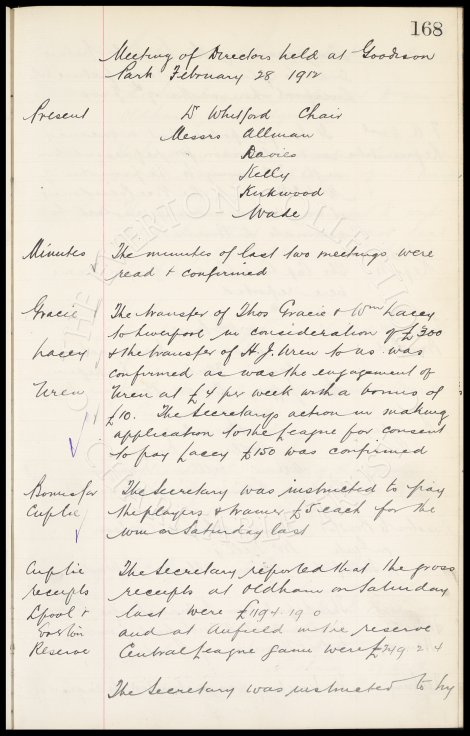 168
Meeting of Directors held at Goodison
Park February 28 1912
Present Dr Whitford Chair
Messrs Allman
Davies
Kelly
Kirkwood
Wade
Minutes The minutes of last two meetings were
read & confirmed
Gracie The transfer of Thos Gracie & Wm Lacey
to Liverpool in consideration of £300
Lacey & the transfer of H. J. Uren to us was
confirmed as was the engagement of
Uren Uren at £4 per week with a bonus of
£10. The Secretary's action in making
application to the League for consent
to pay Lacey £150 was confirmed
Bonus for The Secretary was instructed to pay
Cup tie the players & trainer £5 each for the
win on Saturday last
Cup tie The Secretary reported that the gross
receipts receipts at Oldham on Saturday
L'pool & last were £1194.19.0
Everton and at Anfield in the reserve
Reserve Central League game were £249 2 4
The Secretary was instructed to try
THE EVERTON COLLECTION